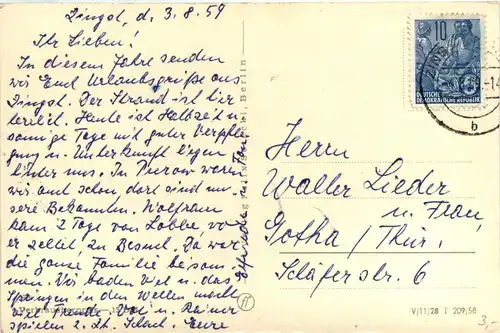 Zingst, d. 3.8.59
Ihr Lieben!
In diesem Jahre senden
wir Euch Urlaubsgrüße aus
Zingst. Der Strand ist hier
herrlich. Heute ist Halbzeit u.
sonnige Tage mit guter Verpfle-
gung u. Unterkunft liegen
hinter uns. In Prerow waren
wir auch schon, dort sind un-
sere Bekannten. Wolfram
kam 2 Tage von Lobbe, wo
er zeltet zu Besuch. Da war
die ganze Familie beisam-
men. Wir baden viel u. das
Springen in den Wellen macht
viel Freude. Vati u. Rainer
spielen z. Zt. Schach. Eure
10
DEUTSCHE
DEMOKRATISCHE REPUBLIK
ZINGST
-14
b
Herrn
Walter Lieder
u. Frau
Gotha / Thür.
Schäferstr. 6
V/11/28 I 209/58
3.-